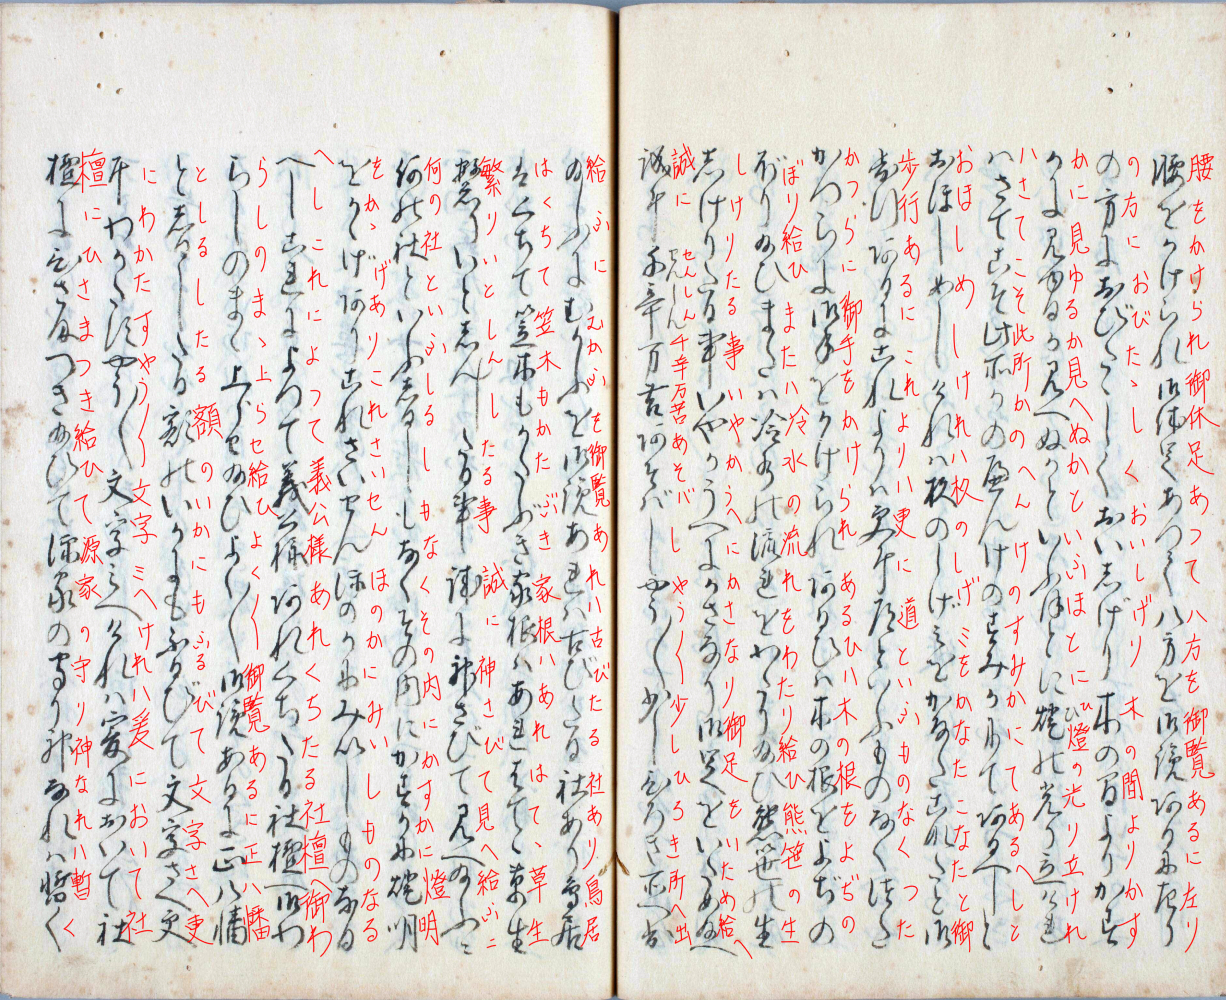 腰をかけられ御休足あつて八方を御覧あるに左り
の方におびたゝしくおいしげり木の間よりかす
かに見ゆるか見へぬかといふほとにひ燈の光り立けれ
ハさてこそ此所かのへんけのすみかにてあるへしと
おほしめしけれハ枚のしげミをかなたこなたと御
歩行あるにこれより八更に道といふものなくつた
かつらに御手をかけられあるひハ木の根をよぢの
ぼり給ひまたハ冷水の流れをわたり給ひ熊笹の生
しけりたる事いやかうへにかさなり御足をいため給へ
誠にせんしん千辛万苦あそバしやう〱少しひろき所へ出
給ふにむかふを御覧あれハ古びたる社あり鳥居
はくちて笠木もかたぶき家根ハあれはてゝ草生
繁りいとしんしたる事誠に神さびて見へ給ふニ
何の社といふしるしもなくその内にかすかに燈明
をかゝげありこれさいせんほのかにみいしものなる
へしこれによつて義公様あれくちたる社檀へ御わ
らしのまゝ上らセ給ひよく〱御覧あるに正八幡
としるしたる額のいかにもふるびて文字さへ更
にわかたすやう〱文字ミへけれハ爰において社
檀にひさまつき給ひて源家の守り神なれハ暫く